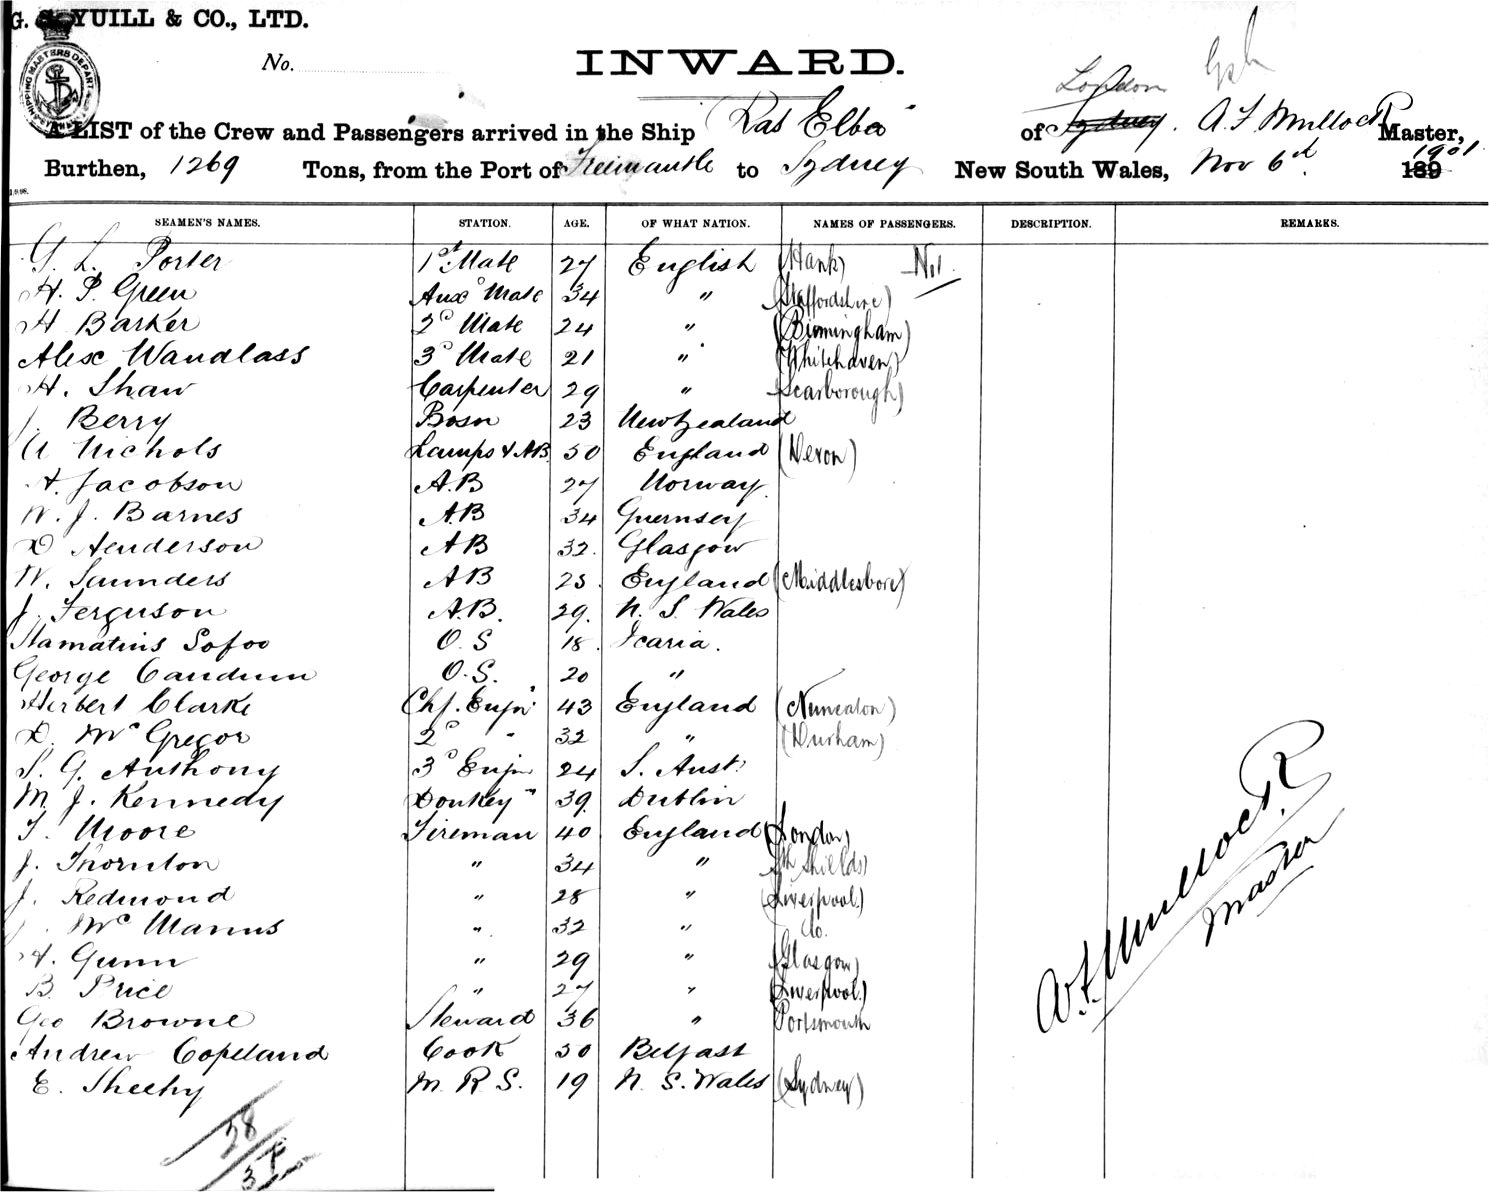 G. S. YUILL & CO., LTD.
SHIPPING MASTERS DEPART
No.
INWARD.
London
A LIST of the Crew and Passengers arrived in the Ship "Ras Elba" of Sydney. A. F. Mullock Master,
Burthen, 1269 Tons, from the Port of Freimantle to Sydney New South Wales, Nov 6th 189 1901.
SEAMEN'S NAMES. STATION. AGE. OF WHAT NATION. NAMES OF PASSENGERS. DESCRIPTION. REMARKS.
G. L. Porter 1st Mate 27 English (Hank) Nil.
H. P. Green Auxc Mate 34 " (Staffordshire)
H Barker 2d Mate 24 " (Birmingham)
Alex Wandlass 3d Mate 21 " (Whitehaven)
H. Shaw Carpenter 29 " (Scarborough)
J. Berry Bosn 23 New Zealand
A Nichols Lamps & AB 50 England (Devon)
A. Jacobson A.B 27 Norway.
W. J. Barnes A.B 34 Guernsey
D Henderson AB 32. Glasgow
W. Saunders AB 25. England (Middlesboro)
J. Ferguson A.B. 29. N. S. Wales
Stamatius Sofoo O. S 18. Icaria.
George O.S. 20 "
Herbert Clarke Chf. Engr 43 England (Nuneaton)
D. McGregor 2d " 32 " (Durham)
S. G. Anthony 3d Engr 24 S. Aust.
M. J. Kennedy Donkey " 39. Dublin
T. Moore Fireman 40 England (London)
J. Thornton " 34 " (Sth Shields)
J. Redmond " 28 " (Liverpool.)
J. McManus " 32 " do.
A. Gunn " 29 " (Glasgow)
B. Price " 27 " (Liverpool.)
Geo Browne Steward 36 " Portsmouth
Andrew Copeland Cook 50 Belfast
E. Sheehy M. R. S. 19 N. S. Wales (Sydney)
A. F. Mullock
Master
28